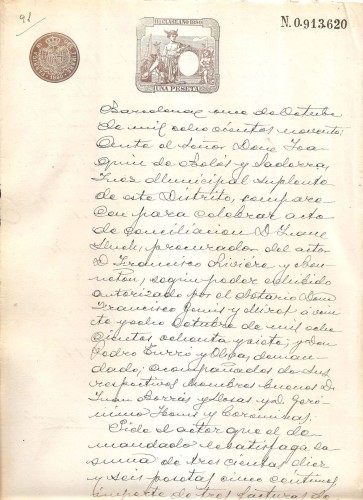 98
N.0.913.620
11ª CLASE. AÑO 1890
UNA PESETA
Barcelona uno de Octubre
de mil ocho cientos noventa:
Ante el Señor Don Joa
quin de Bolós y Saderra,
Juez Municipal Suplente
de este Distrito, compare
cen para celebrar acto
de conciliacion D. Jaime
procurador del actor
D. Francisco Riviére y
segun poder exhibido
autorizado por el Notario Don
Francisco y á vein
te y ocho Octubre de mil ocho
cientos ochenta y siete; y Don
Pedro Turró y deman
dado, acompañados de sus
respectivos hombres buenos D.
Juan Borrás y y D. Geró
nimo y Corominas.
Pide el actor que el de
mandado le satisfaga la
suma de tres cientas diez
y seis pesetas cinco céntimos
importe de tres facturas de